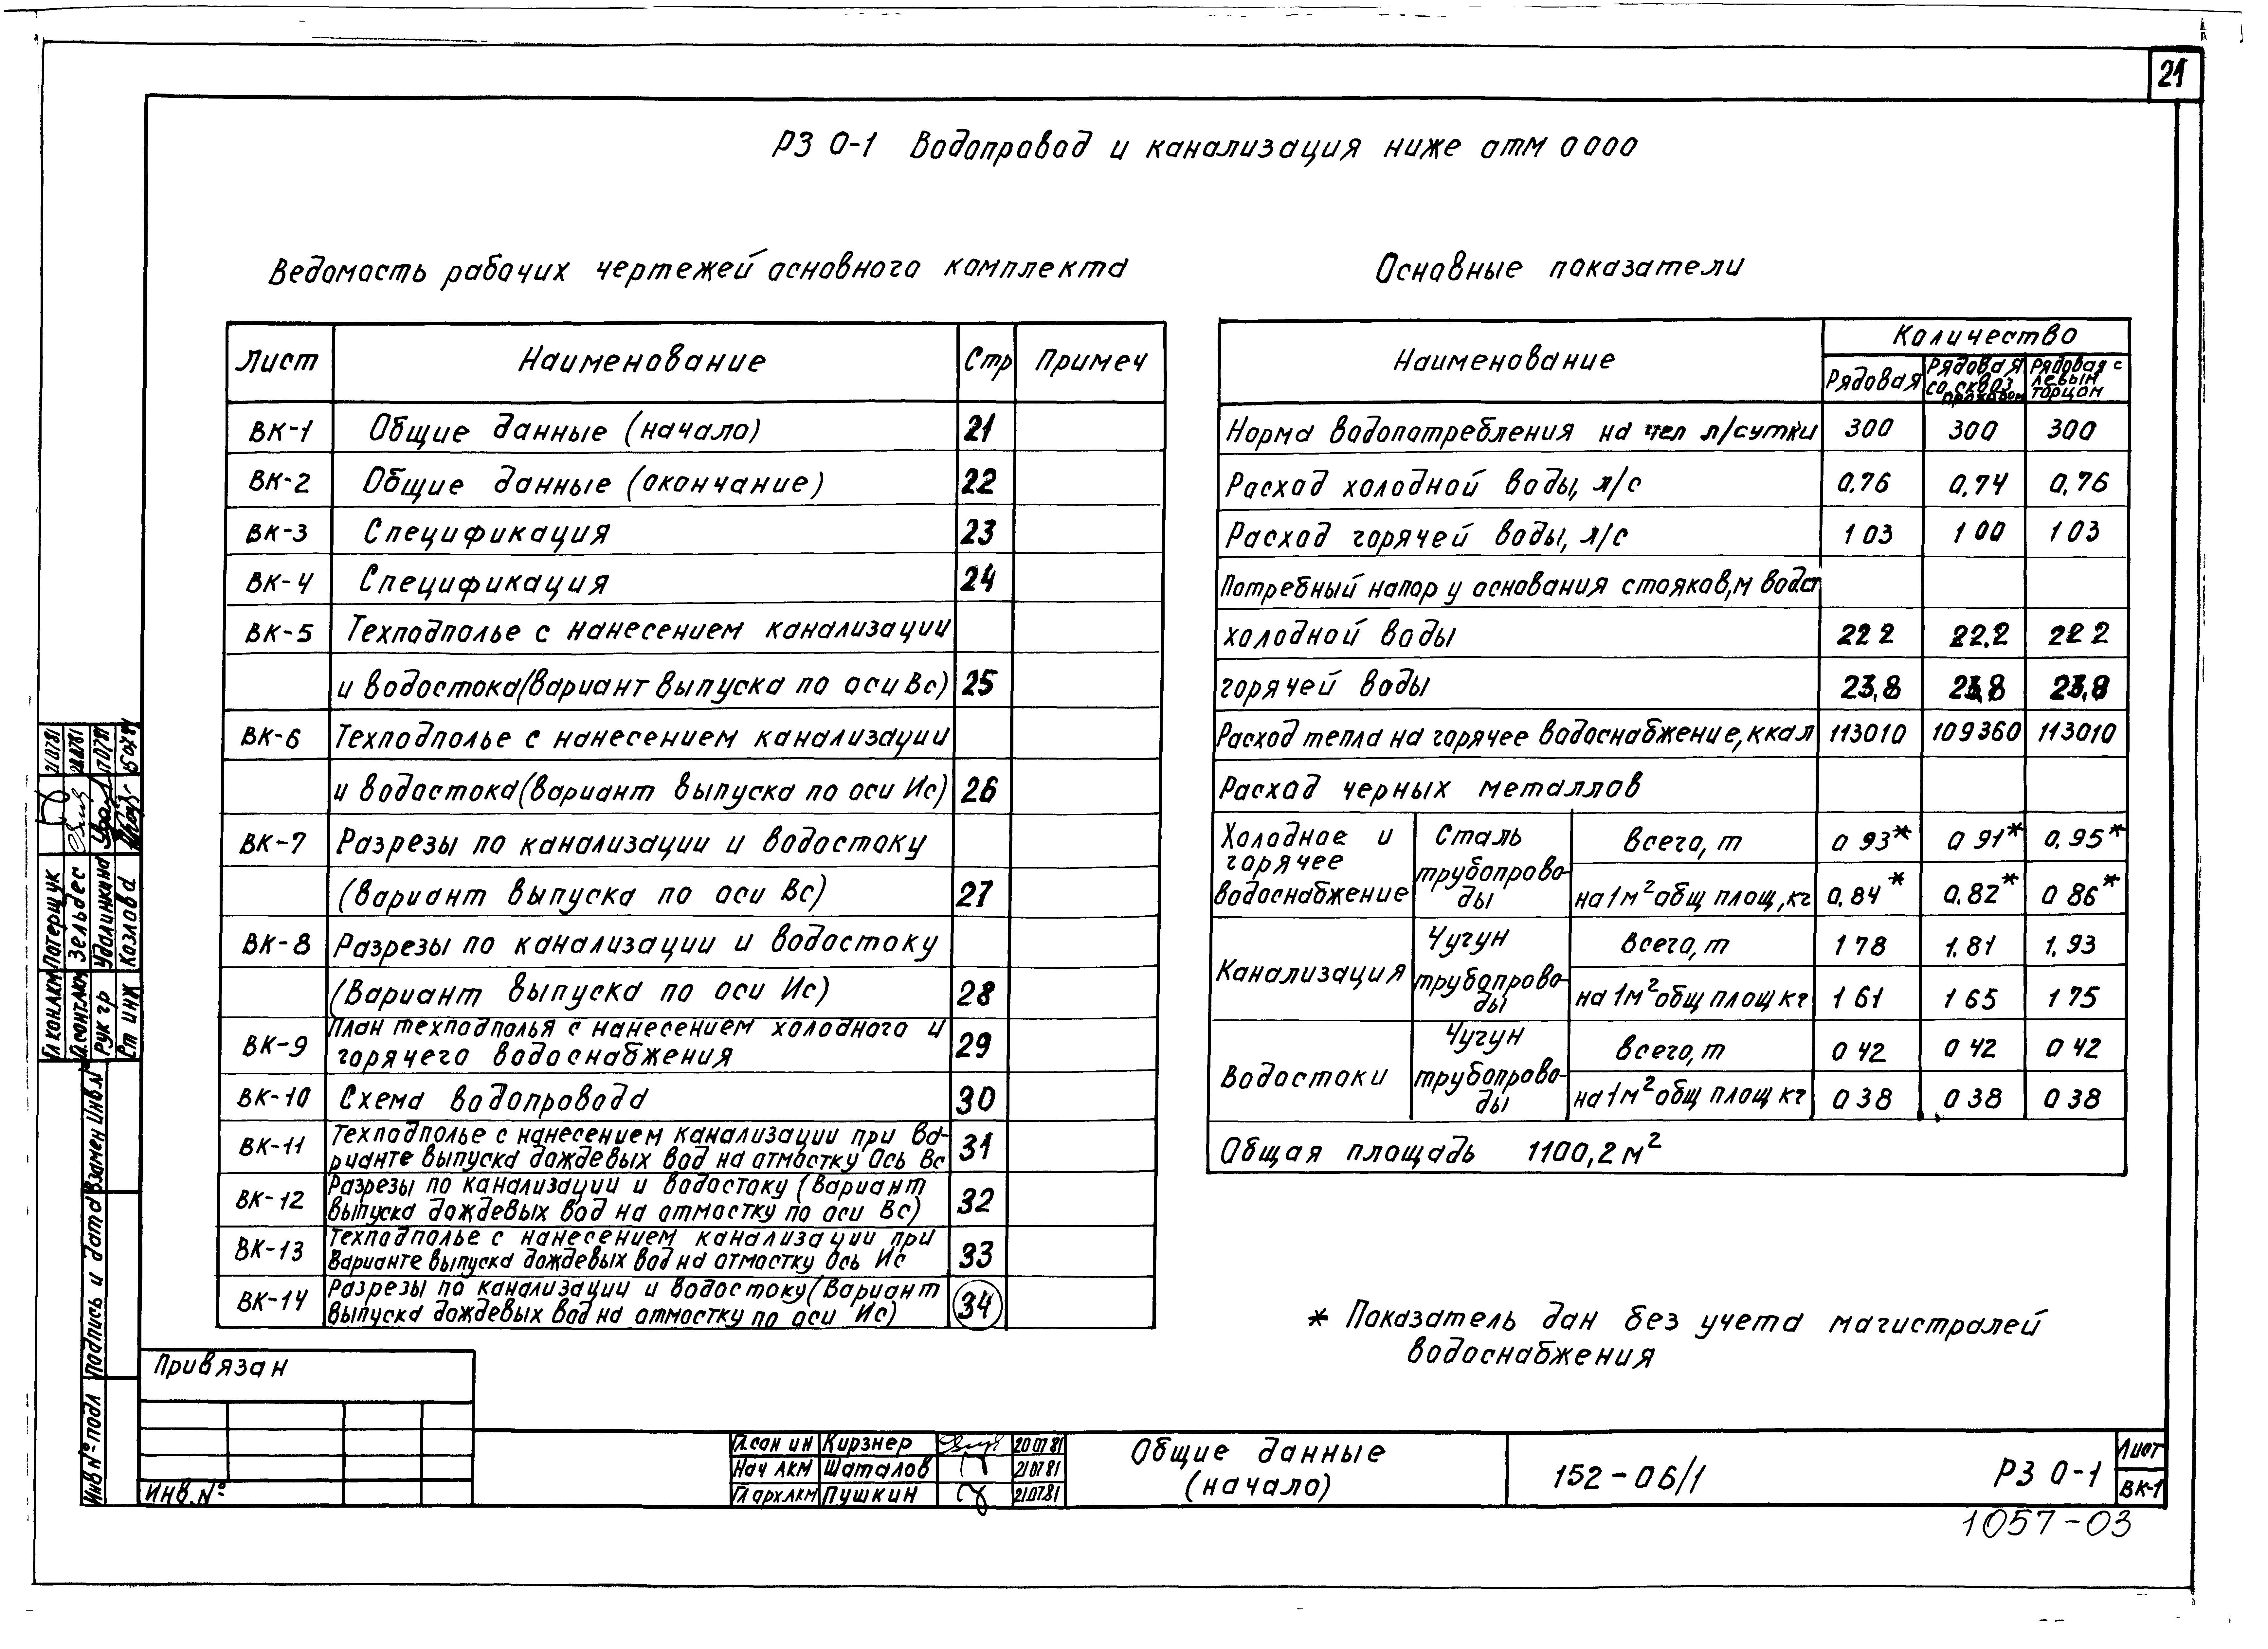 21
РЗ 0-1 Водопровод и канализация ниже отм 0 000
Ведомость рабочих чертежей основного комплекта
Лист Наименование Стр Примеч
ВК-1 Общие данные (начало) 21
ВК-2 Общие данные (окончание) 22
ВК-3 Спецификация 23
ВК-4 Спецификация 24
ВК-5 Техподполье с нанесением канализации
и водостока (вариант выпуска по оси Вс) 25
ВК-6 Техподполье с нанесением канализации
и водостока (вариант выпуска по оси Ис) 26
ВК-7 Разрезы по канализации и водостоку
(вариант выпуска по оси Вс) 27
ВК-8 Разрезы по канализации и водостоку
(Вариант выпуска по оси Ис) 28
ВК-9 План техподполья с нанесением холодного и
горячего водоснабжения 29
ВК-10 Схема водопровода 30
ВК-11 Техподполье с нанесением канализации при ва-
рианте выпуска дождевых вод на отмостку Ось Вс 31
ВК-12 Разрезы по канализации и водостоку (Вариант
выпуска дождевых вод на отмостку по оси Вс) 32
ВК-13 Техподполье с нанесением канализации при
Варианте выпуска дождевых вод на отмостку Ось Ис 33
ВК-14 Разрезы по канализации и водостоку (Вариант
выпуска дождевых вод на отмостку по оси Ис) 34
Основные показатели
Наименование Количество
Рядовая Рядовая со сквоз проходом Рядовая с левым торцом
Норма водопотребления на чел л/сутки 300 300 300
Расход холодной воды, л/с 0,76 0,74 0,76
Расход горячей воды, л/с 1 03 1 00 1 03
Потребный напор у основания стояков, м вод ст
холодной воды 22 2 22,2 22 2
горячей воды 23,8 23,8 23,8
Расход тепла на горячее водоснабжение, ккал 113010 109360 113010
Расход черных металлов
Холодное и горячее водоснабжение Сталь трубопрово-ды Всего, т 0 93* 0 91* 0,95*
на 1м² общ площ, кг 0,84* 0,82* 0 86*
Канализация Чугун трубопрово-ды Всего, т 1 78 1,81 1,93
на 1м² общ площ кг 1 61 1 65 1 75
Водостоки Чугун трубопрово-ды Всего, т 0 42 0 42 0 42
на 1м² общ площ кг 0 38 0 38 0 38
Общая площадь 1100,2 м²
* Показатель дан без учета магистралей
водоснабжения
Гл кон ЛКМ Потерщук 21 07 81
Зельвес
Рук гр Удалинкина 17 07 81
Ст инж Козлова 15 07 81
Взамен Инв №
Подпись и дата
Инв № подл
Привязан
Инв. №
Гл.сан ин Кирзнер 20 07 81
Нач ЛКМ Шаталов 21 07 81
Гл арх ЛКМ Пушкин 21.07.81
Общие данные
(начало)
152-06/1
РЗ 0-1
Лист
ВК-1
1057-03